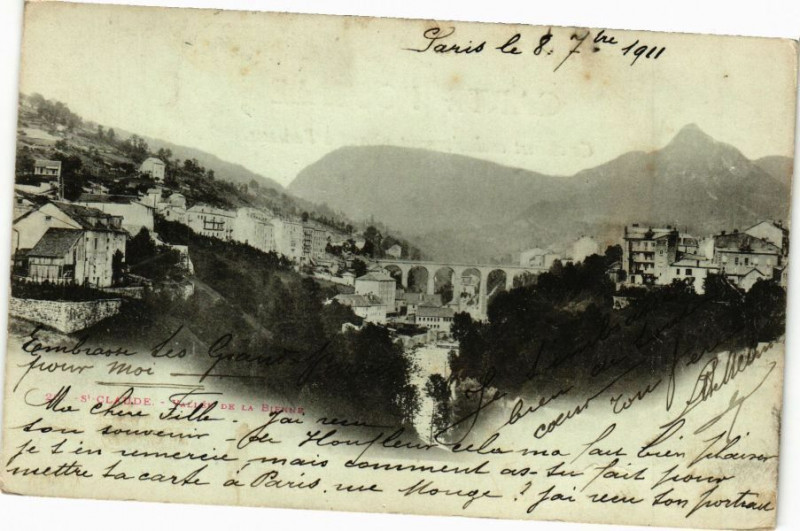 Paris le 8. 7bre 1911
Embrasse les Grands
pour moi
ST CLAUDE. - VALLÉE DE LA BIENNE
Ma chère fille - j'ai reçu
ton souvenir - de Honfleur cela ma fait bien plaisir
je t'en remercie, mais comment as-tu fait pour
mettre ta carte à Paris. rue Monge ? j'ai reçu ton portrait
Je
bien de
cœur ton